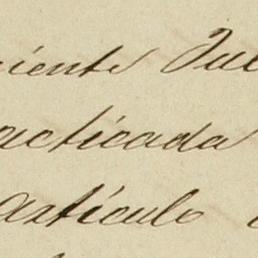 niente Jue
acticada
artículo